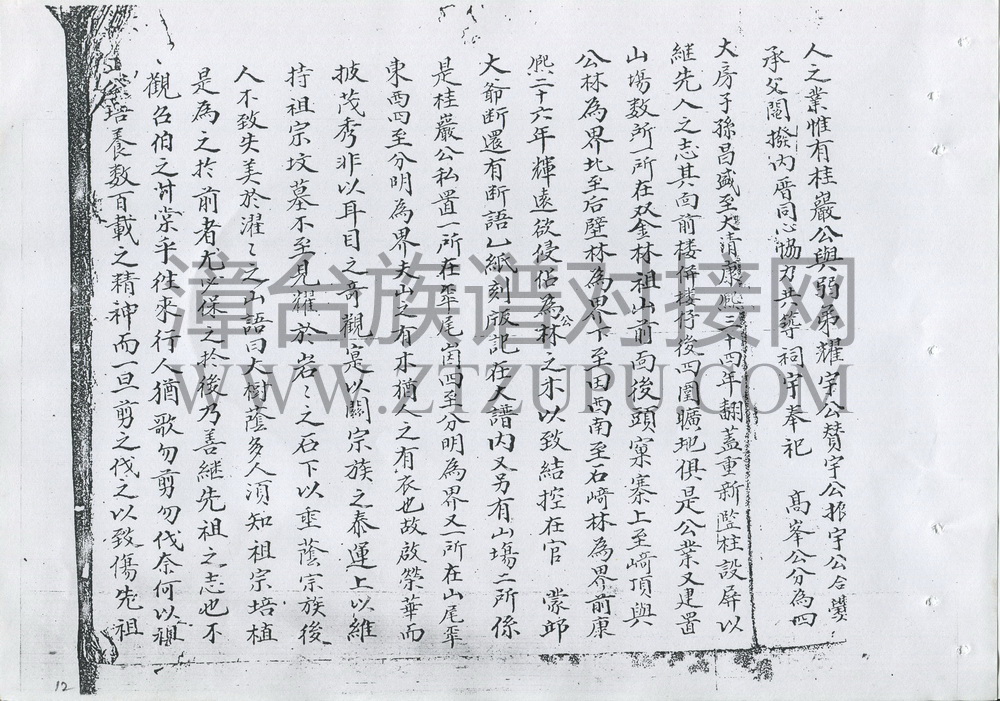 人之業惟有桂嚴公與弱弟耀宇公贊宇公振宇公合議
承父鬮撥內厝同心協力共築祠宇奉祀 高峯公分為四
大房子孫昌盛至大清康熙三十四年翻蓋重新監柱設屏以
継先人之志其面前楼併楼仔後四圍曠地俱是公業又建置
山塲数所一所在双金林祖山前面後頭寨上至崎頂與
公林為界北至后壁林為界下至田西南至石崎林為界前康
熙二十六年輝遠欲侵佔為公林之木以致結控在官 蒙邱
大爺断還有断語乙紙刻版記在大譜內又另有山塲二所係
是桂嚴公私置一所在犁尾崮四至分明為界又一所在山尾犁
東西四至分明為界夫山之有木猶人之有衣也故啟榮華而
披茂秀非以耳目之奇觀寔以關宗族之泰運上以維
持祖宗坟墓不至見耀於岩〻之石下以垂蔭宗族後
人不致失美於濯〻之山語曰大樹蔭多人須知祖宗培植
是為之於前者尤必保之於後乃善継先祖之志也不
觀召伯之甘棠乎往來行人猶歌勿剪勿伐奈何以祖
宗培養数百載之精神而一旦剪之伐之以致傷先祖
12
漳台族谱对接网
WWW.ZTZUPU.COM